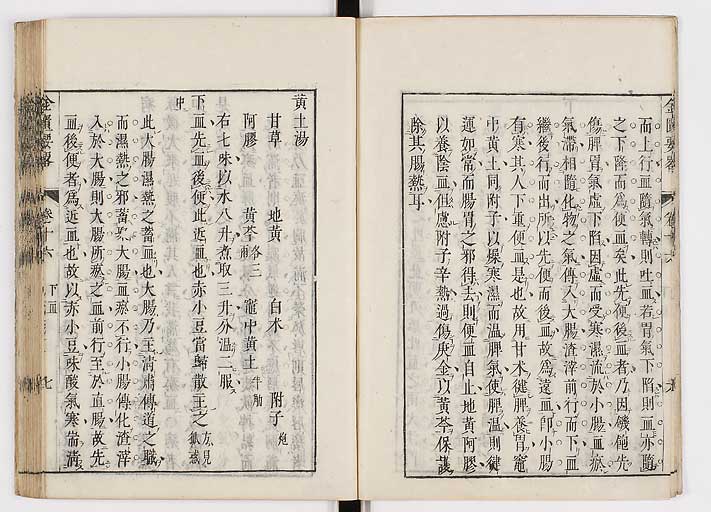 金匱要畧
卷十六
而上行血隨氣轉則吐血若胃氣下陷則血亦隨
之下降而為便血矣此先便後血者乃因饑飽先
傷脾胃氣虛下陷因虛而受寒濕流於小腸血瘀
氣滯相隨化物之氣傳入大腸渣滓前行而下血
繼後行而出所以先便而後血故為遠血即小腸
有寒其人下重便血是也故用甘术健脾養胃竈
中黃土同附子以燥寒濕而溫脾氣使脾溫則健
運如常而腸胃之邪得去則便血自止地黃阿膠
以養陰血但慮附子辛熱過傷庚金以黃芩保護
除其腸熱耳
黃土湯
甘草 地黃 白术 附子 炮
阿膠 黃芩 各三兩 竈中黃土 半觔
右七味以水八升煮取三升分溫二服
下血先血後便此近血也赤小豆當歸散主之 方見狐惑
中
此大腸濕熱之蓄血也大腸乃主清肅傳道之職
而濕熱之邪蓄於大腸血瘀不行小腸傳化渣滓
入於大腸則大腸所瘀之血前行至於直腸故先
血後便者為近血也故以赤小豆味酸氣寒耑清
金匱要畧
卷十六 下血
七